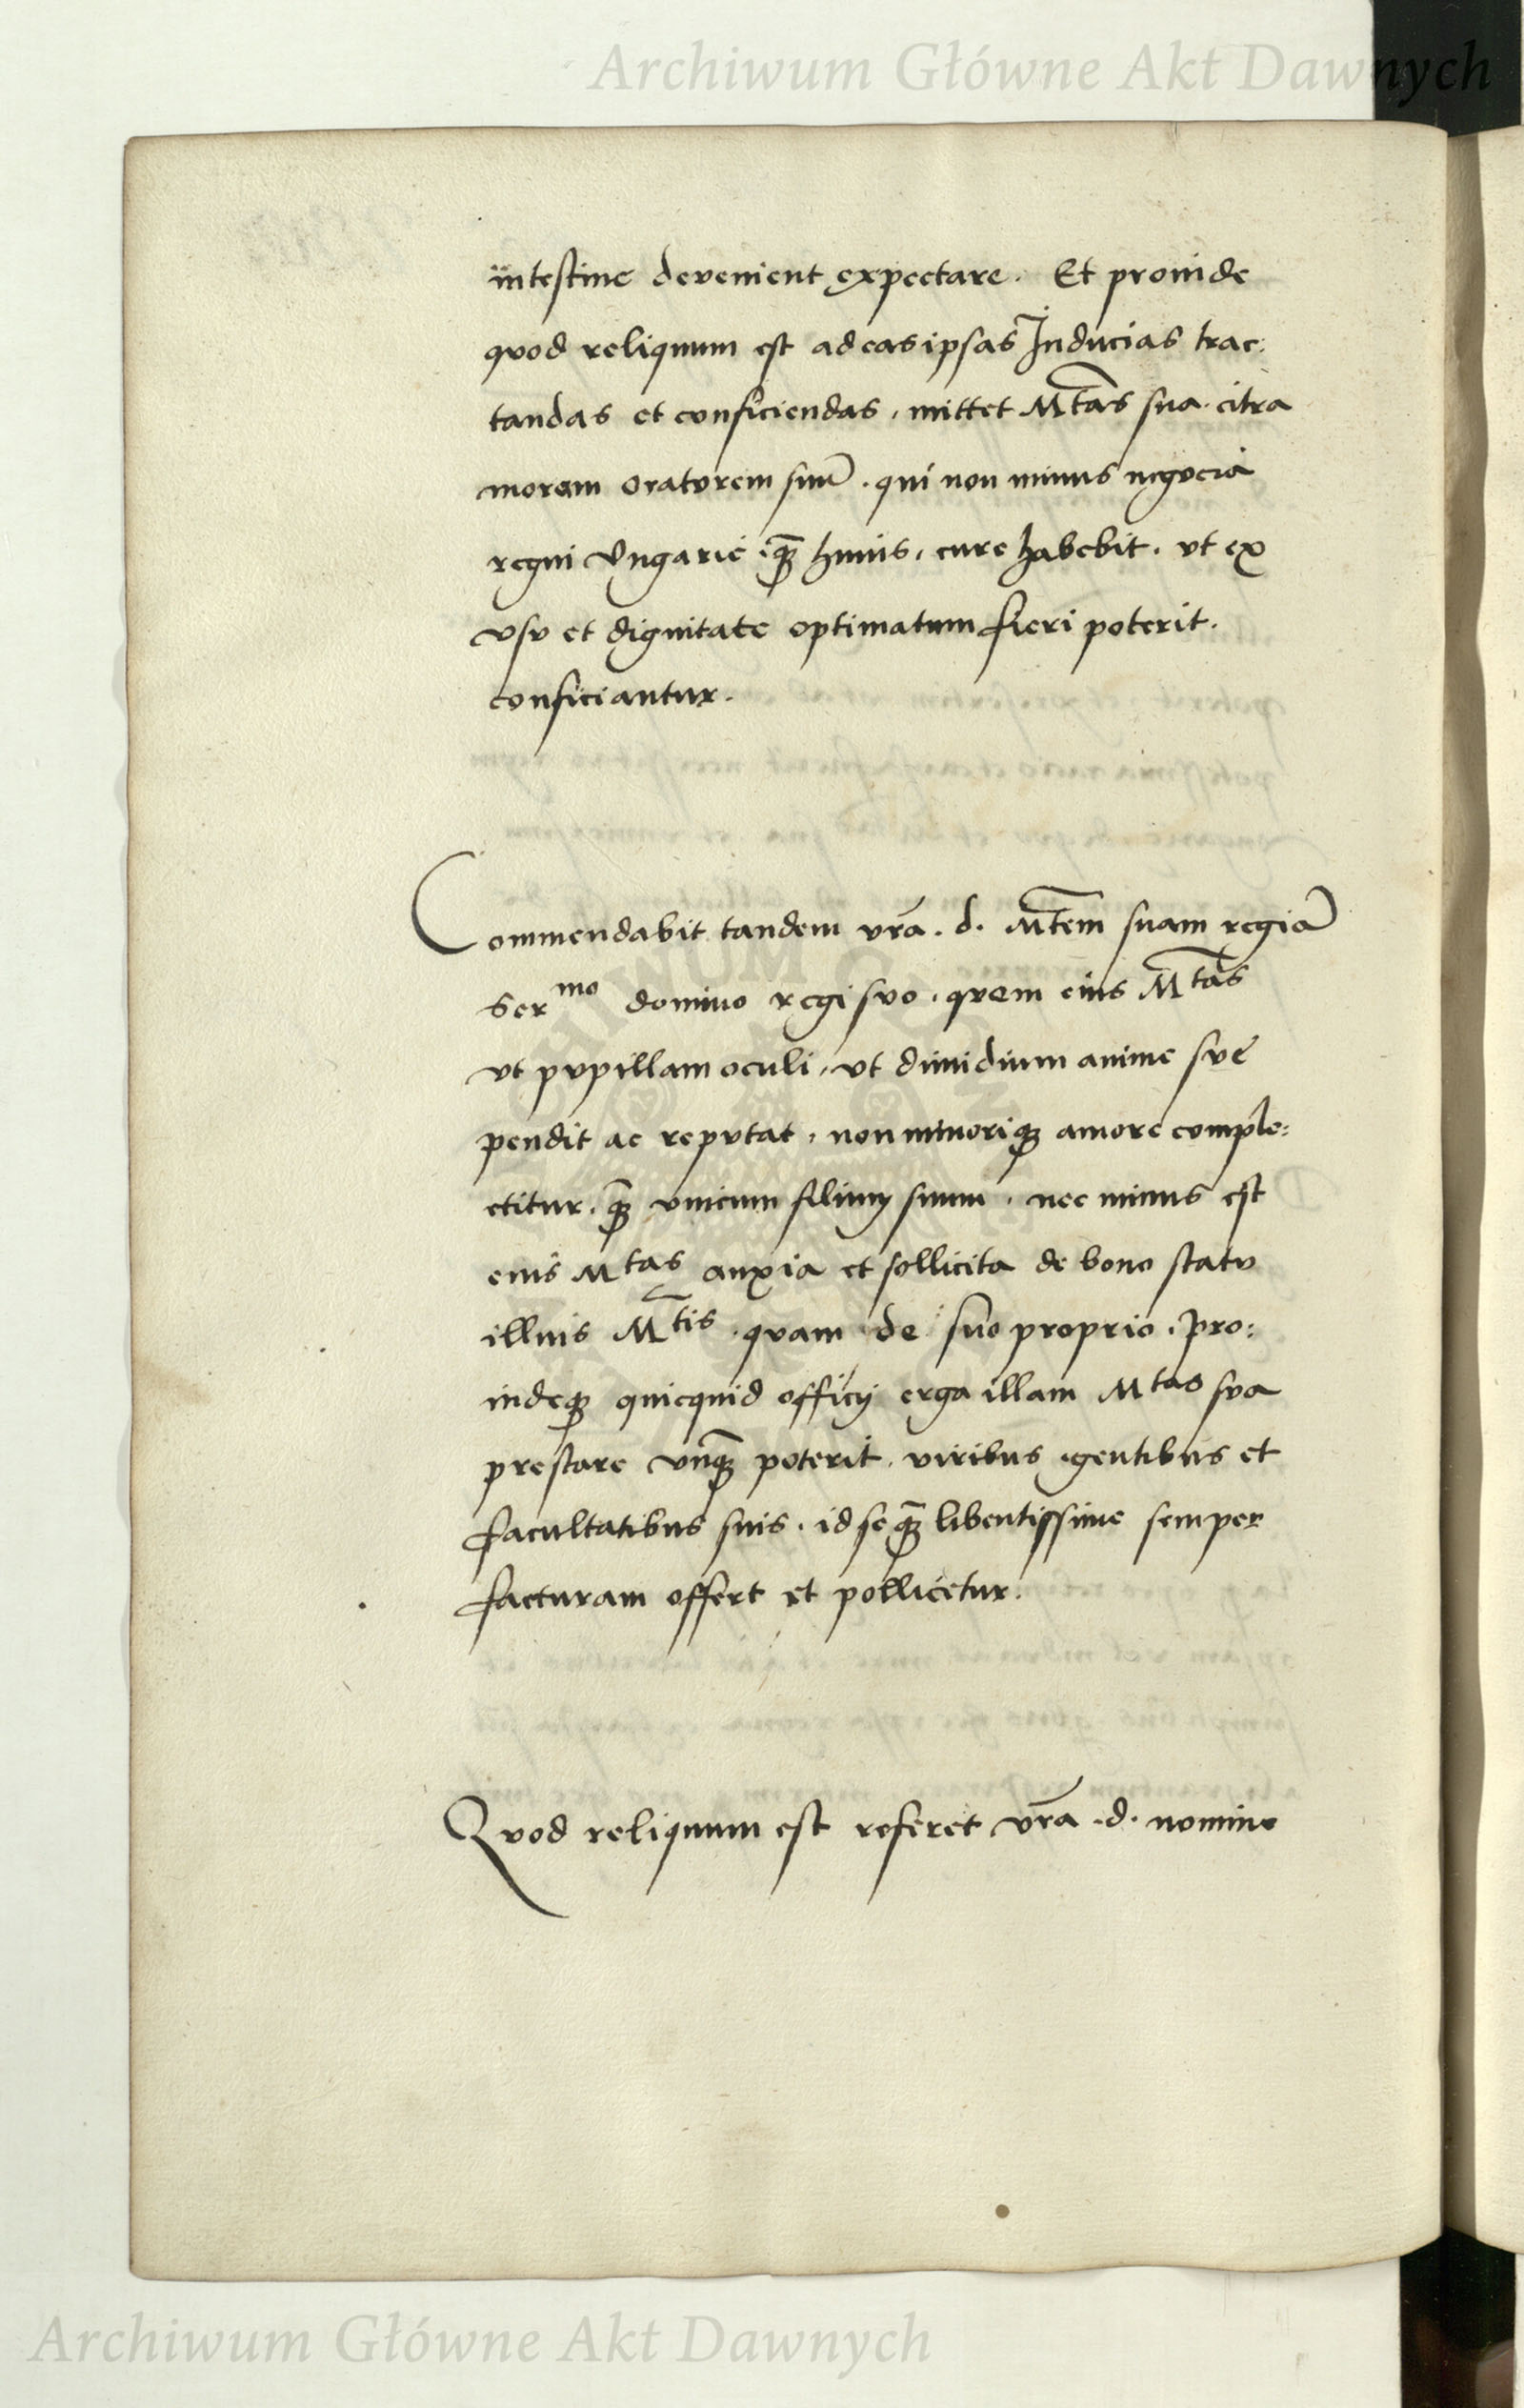 Archiwum Główne Akt Dawnych
intestine devenient expectare. Et proinde
quod reliquum est ad eas ipsas Inducias trac:
tandas et conficiendas, mittet M̃tas sua. citra
moram oratorem suũ. qui non minus negocia
regni Vngarie. q̃ꝫ huius, cure habebit. vt ex
vsu et dignitate optimatum fieri poterit.
conficiantur.
Commendabit tandem vr̃a. d. M̃tem suam regiã
Ser^mo domino regi suo. quem eius M̃tas
vt pupillam oculi, vt dimidium anime sue
pendit ac reputat, non minoriqꝫ amore comple:
ctitur. q̃ꝫ vnicum filium suum. nec minus est
eius M^tas anxia et sollicita de bono statu
illius M̃^tis. quam de suo proprio. Pro:
indeqꝫ quicquid officij erga illam M^tas sua
prestare vnq̃ꝫ poterit. viribus, gentibus et
facultatibus suis. id se q̃ꝫ libentissime semper
facturam offert et pollicetur.
Quod reliquum est referet vr̃a. d. nomine
Archiwum Główne Akt Dawnych